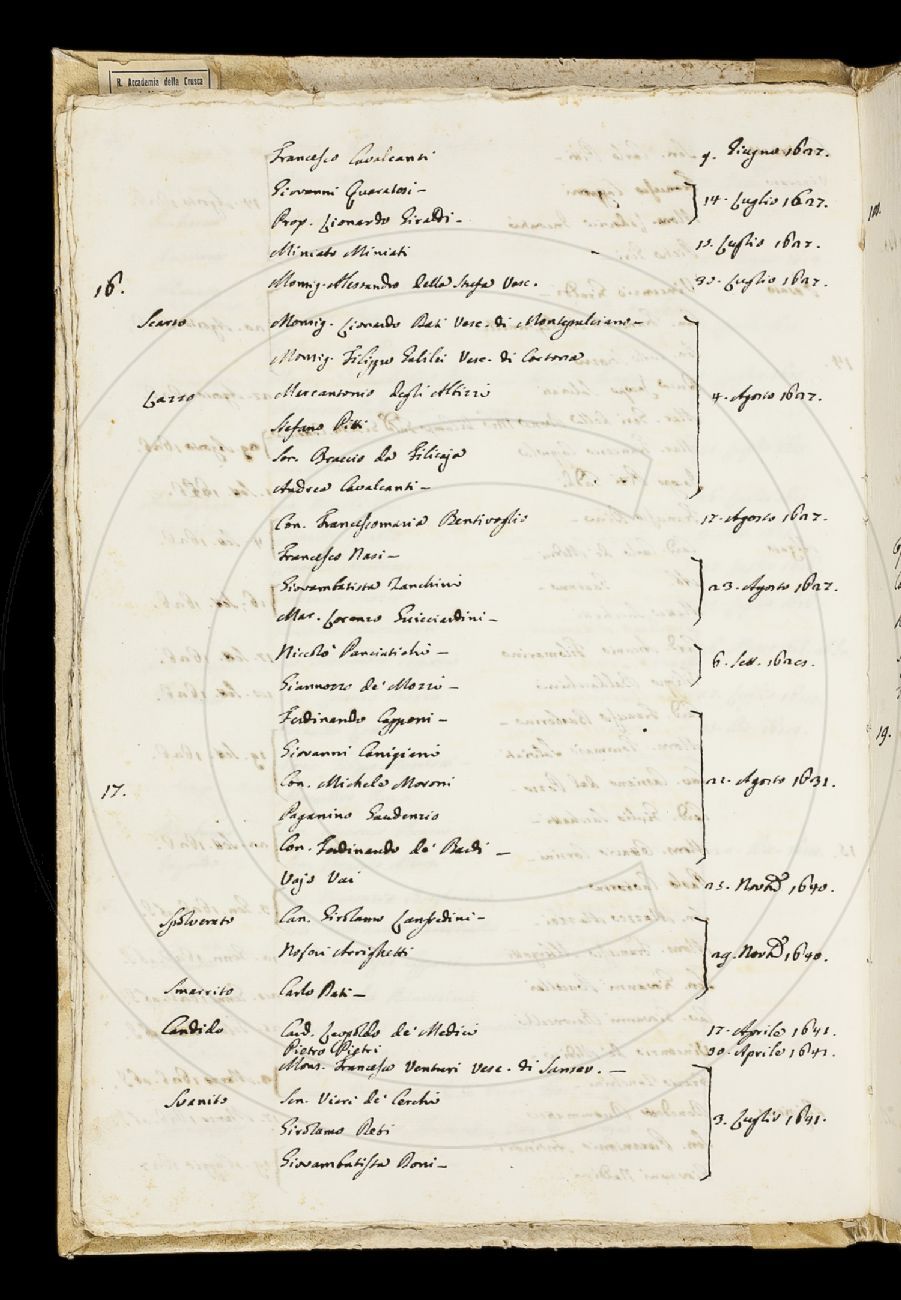 R. Accademia della Crusca
Francesco Cavalcanti 9. Giugno 1627.
Giovanni Quaratesi -
Prop. Lionardo Giraldi - 14. Luglio 1627.
Miniato Miniati Luglio 1627.
16. Monsig. Alessandro della Stufa Vesc. 30. Luglio 1627.
Scarso Monsig. Lionardo Dati Vesc. di Montepulciano -
Monsig. Filippo Galilei Vesc. di Cortona
Marcantonio degli Albizzi 4. Agosto 1627.
Stefano Pitti
Sen. Braccio da Filicaja
Andrea Cavalcanti -
Con. Francescomaria Bentivoglio 17. Agosto 1627.
Francesco Nasi -
Giovambatista Zanchini 23. Agosto 1627.
Mar. Lorenzo Guicciardini -
Niccolò Panciatichi - 6. Sett.
Giannozzo de' Mozzi -
Ferdinando Capponi -
Giovanni Canigiani
17. Con. Michele Moroni Agosto 1631.
Paganino Gaudenzio
Con. Ferdinando de' Bardi -
Vajo Vai Nov. 1640.
Spolverato Can. Girolamo Lanfredini -
Nofri Arrighetti 29. Nov. 1640.
Smarrito Carlo Dati -
Candido Card. Leopoldo de' Medici 17. Aprile 1641.
Pietro Pietri 30. Aprile 1641.
Mons. Francesco Venturi Vesc. di Sansev. -
Svanito Sen. Vieri de' Cerchi
Girolamo 3. Luglio 1641.
Giovambatista Doni -
19.